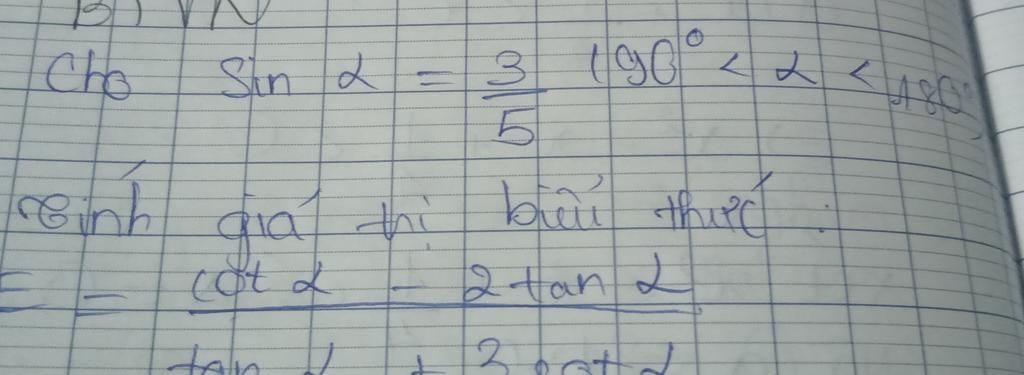 B) VN
Cho Sin α = 3/5 (90° < α < 180°)
Tính giá thị biểu thức :
E = cot α - 2 tan α
tan α + 3 cot α